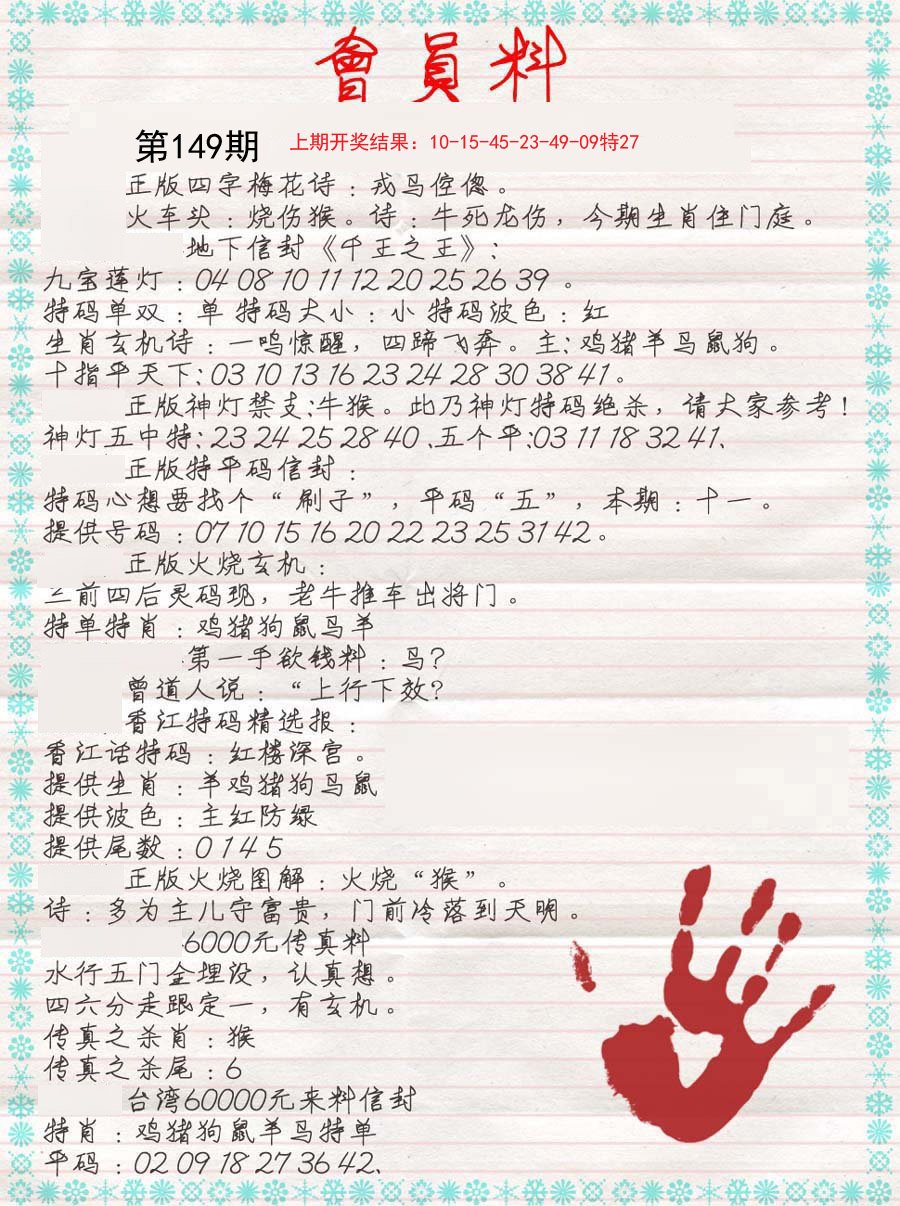 會員料
第149期 上期开奖结果：10-15-45-23-49-09特27
正版四字梅花诗：戎马倥偬。
火车头：烧伤猴。诗：牛死龙伤，今期生肖住门庭。
地下信封《千王之王》：
九宝莲灯：04 08 10 11 12 20 25 26 39 。
特码单双：单 特码大小：小 特码波色：红
生肖玄机诗：一鸣惊醒，四蹄飞奔。主：鸡猪羊马鼠狗。
十指平天下：03 10 13 16 23 24 28 30 38 41。
正版神灯禁支：牛猴。此乃神灯特码绝杀，请大家参考！
神灯五中特：23 24 25 28 40 、五个平：03 11 18 32 41、
正版特平码信封：
特码心想要找个“刷子”，平码“五”，本期：十一。
提供号码：07 10 15 16 20 22 23 25 31 42 。
正版火烧玄机：
三前四后灵码现，老牛推车出将门。
特单特肖：鸡猪狗鼠马羊
第一手欲钱料：马？
曾道人说：“上行下效？
香江特码精选报：
香江话特码：红楼深宫。
提供生肖：羊鸡猪狗马鼠
提供波色：主红防绿
提供尾数：0 1 4 5
正版火烧图解：火烧“猴”。
诗：多为主儿守富贵，门前冷落到天明。
6000元传真料
水行五门金埋没，认真想。
四六分走跟定一，有玄机。
传真之杀肖：猴
传真之杀尾：6
台湾60000元来料信封
特肖：鸡猪狗鼠羊马特单
平码：02 09 18 27 36 42、